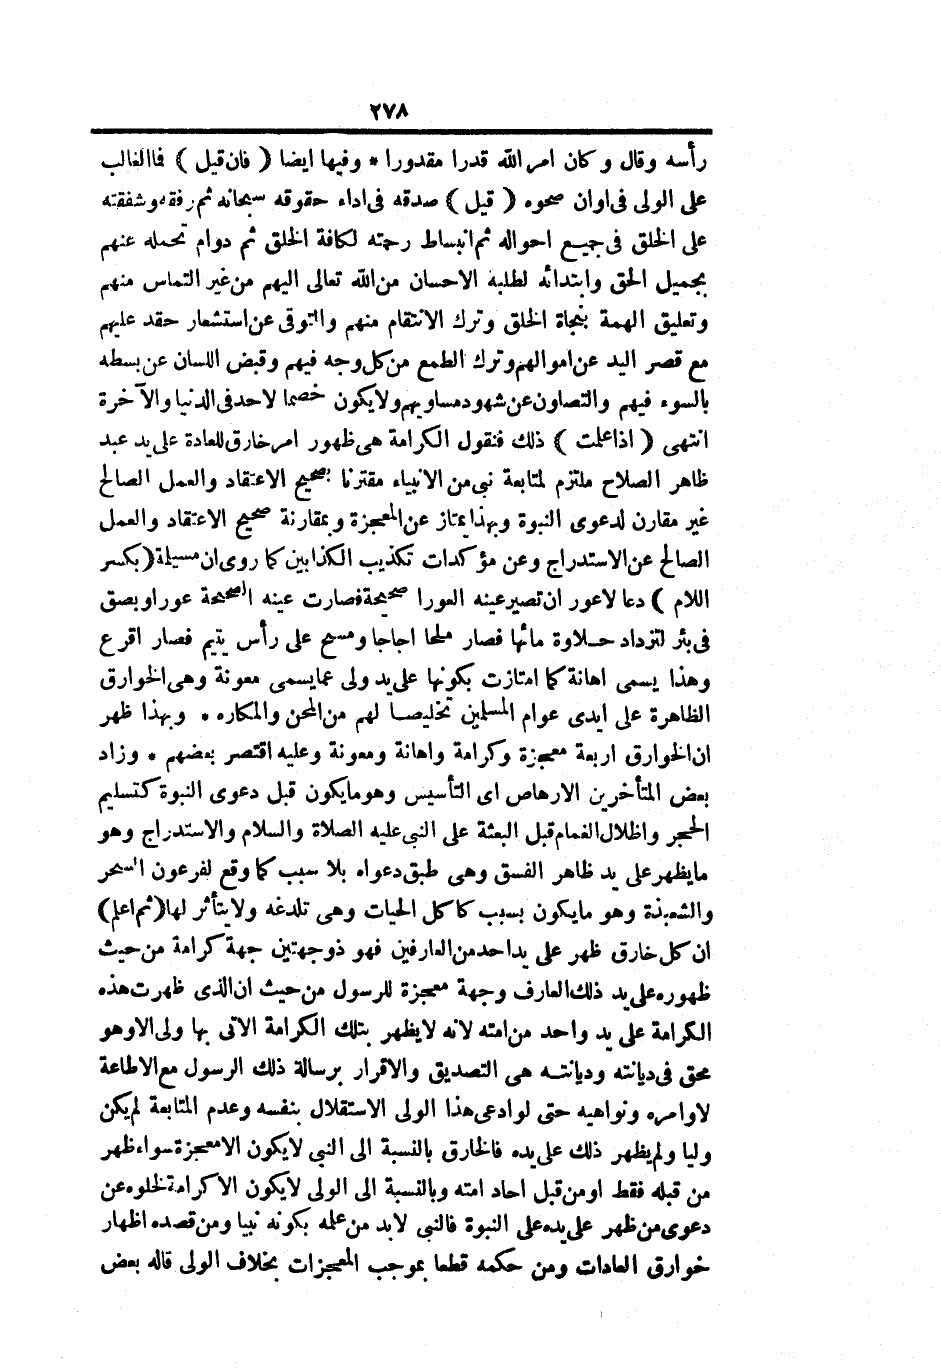 ٢٧٨
رأسه وقال وكان امر الله قدرا مقدورا * وفيها ايضا ( فان قيل ) فاالغالب
على الولى فى اوان صحوه ( قيل ) صدقه فى اداء حقوقه سبحانه ثم رفقه وشفقته
على الخلق فى جميع احواله ثم انبساط رحمته لكافة الخلق ثم دوام تحمله عنهم
بجميل الحق وابتدائه لطلبه الاحسان من الله تعالى اليهم من غير التماس منهم
وتعليق الهمة بنجاة الخلق وترك الانتقام منهم والتوقى عن استشعار حقد عليهم
مع قصر اليد عن اموالهم وترك الطمع من كل وجه فيهم وقبض اللسان عن بسطه
بالسوء فيهم والتصاون عن شهود مساويهم ولا يكون خصما لاحد فى الدنيا والآخرة
انتهى ( اذا علمت ) ذلك فنقول الكرامة هى ظهور امر خارق للعادة على يد عبد
ظاهر الصلاح ملتزم لمتابعة نبى من الانبياء مقترنا بصحيح الاعتقاد والعمل الصالح
غير مقارن لدعوى النبوة وبهذا يمتاز عن المعجزة وبمقارنة صحيح الاعتقاد والعمل
الصالح عن الاستدراج وعن مؤكدات تكذيب الكذابين كما روى ان مسيلمة (بكسر
اللام ) دعا لاعور ان تصير عينه العورا صحيحة فصارت عينه الصحيحة عورا وبصق
فى بئر لتزداد حلاوة مائها فصار ملحا اجاجا ومسح على رأس يتيم فصار اقرع
وهذا يسمى اهانة كما امتازت بكونها على يد ولى عما يسمى معونة وهى الخوارق
الظاهرة على ايدى عوام المسلمين تخليصا لهم من المحن والمكاره * وبهذا ظهر
ان الخوارق اربعة معجزة وكرامة واهانة ومعونة وعليه اقتصر بعضهم * وزاد
بعض المتأخرين الارهاص اى التأسيس وهو مايكون قبل دعوى النبوة كتسليم
الحجر واظلال الغمام قبل البعثة على النبى عليه الصلاة والسلام والاستدراج وهو
مايظهر على يد ظاهر الفسق وهى طبق دعواه بلا سبب كما وقع لفرعون السحر
والشعبذة وهو مايكون بسبب كاكل الحيات وهى تلدغه ولا يتأثر لها (ثم اعلم)
ان كل خارق ظهر على يد احد من العارفين فهو ذو جهتين جهة كرامة من حيث
ظهوره على يد ذلك العارف وجهة معجزة للرسول من حيث ان الذى ظهرت هذه
الكرامة على يد واحد من امته لانه لا يظهر بتلك الكرامة الاتى بها ولى الا وهو
محق فى ديانته وديانته هى التصديق والاقرار برسالة ذلك الرسول مع الاطاعة
لاوامره ونواهيه حتى لو ادعى هذا الولى الاستقلال بنفسه وعدم المتابعة لم يكن
وليا ولم يظهر ذلك على يده فالخارق بالنسبة الى النبى لا يكون الا معجزة سواء ظهر
من قبله فقط او من قبل احاد امته وبالنسبة الى الولى لا يكون الا كرامة لخلوه عن
دعوى من ظهر على يده على النبوة فالنبى لابد من علمه بكونه نبيا ومن قصده اظهار
خوارق العادات ومن حكمه قطعا بموجب المعجزات بخلاف الولى قاله بعض